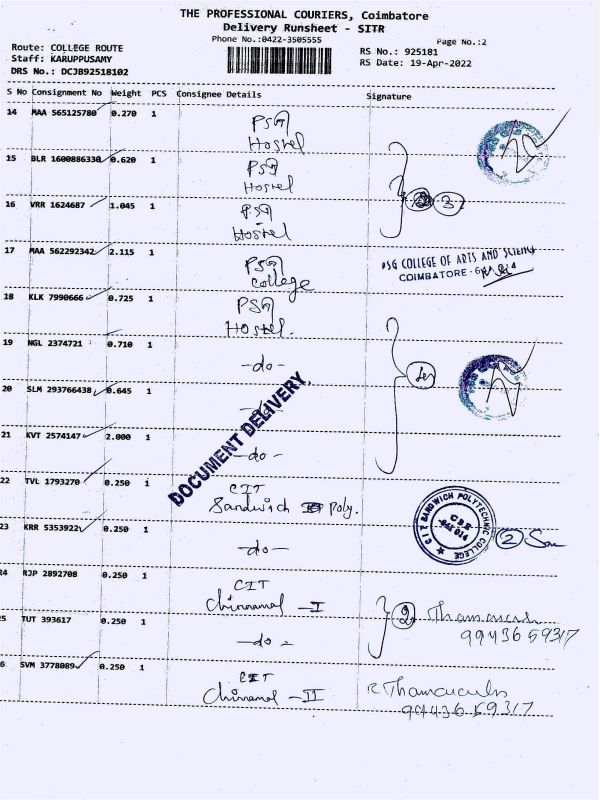 THE PROFESSIONAL COURIERS, Coimbatore
Delivery Runsheet - SITR
Phone No.:0422-3505555
Page No.:2
Route: COLLEGE ROUTE
Staff: KARUPPUSAMY
DRS No.: DCJB92518102
RS No.: 925181
RS Date: 19-Apr-2022
S No Consignment No Weight PCS Consignee Details Signature
14 MAA 565125780 0.270 1 PSG
Hostel
15 BLR 1600886330 0.620 1 PSG
Hostel
16 VRR 1624687 1.045 1 PSG
Hostel
3
17 MAA 562292342 2.115 1 PSG
College
PSG COLLEGE OF ARTS AND SCIENCE
COIMBATORE - 
18 KLK 7990666 0.725 1 PSG
Hostel.
19 NGL 2374721 0.710 1 -do-
20 SLM 293766438 0.645 1
DOCUMENT DELIVERY.
21 KVT 2574147 2.000 1 -do-
22 TVL 1793270 0.250 1 CIT
Sandwich Poly.
C I T SANDWICH POLYTECHNIC COLLEGE
CBE
641 014
2
23 KRR 5353922 0.250 1 -do-
24 RJP 2892708 0.250 1 CIT
Chinnamal - I
2
9943659317
25 TUT 393617 0.250 1 -do-
26 SVM 3778089 0.250 1 CIT
Chinnamal - II
9943659317